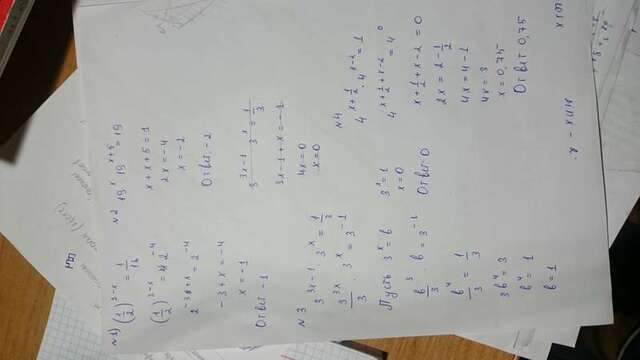 N1) (1/2)^3-x = 1/16
(1/2)^3-x = 2^-4
2^-3+x = 2^-4
-3+x=-4
x=-1
Ответ -1
N2 19^x 19^x+5 = 19
x+x+5=1
2x=-4
x=-2
Ответ -2
N3 3^3x-1 · 3^x = 1/3
3^3x/3 · 3^x = 3^-1
Пусть 3^x = b
b^3/3 · b = 3^-1
b^4/3 = 1/3
3b^4 = 3
b^4 = 1
b=1
3^x=1
x=0
Ответ 0
3^3x-1 3^x = 1/3
3x-1+x=-1
4x=0
x=0
N4 4^x+1/2 · 4^x-2 = 1
4^x+1/2+x-2 = 4^0
x+1/2+x-2=0
2x=2-1/2
4x=4-1
4x=3
x=0,75
Ответ 0,75